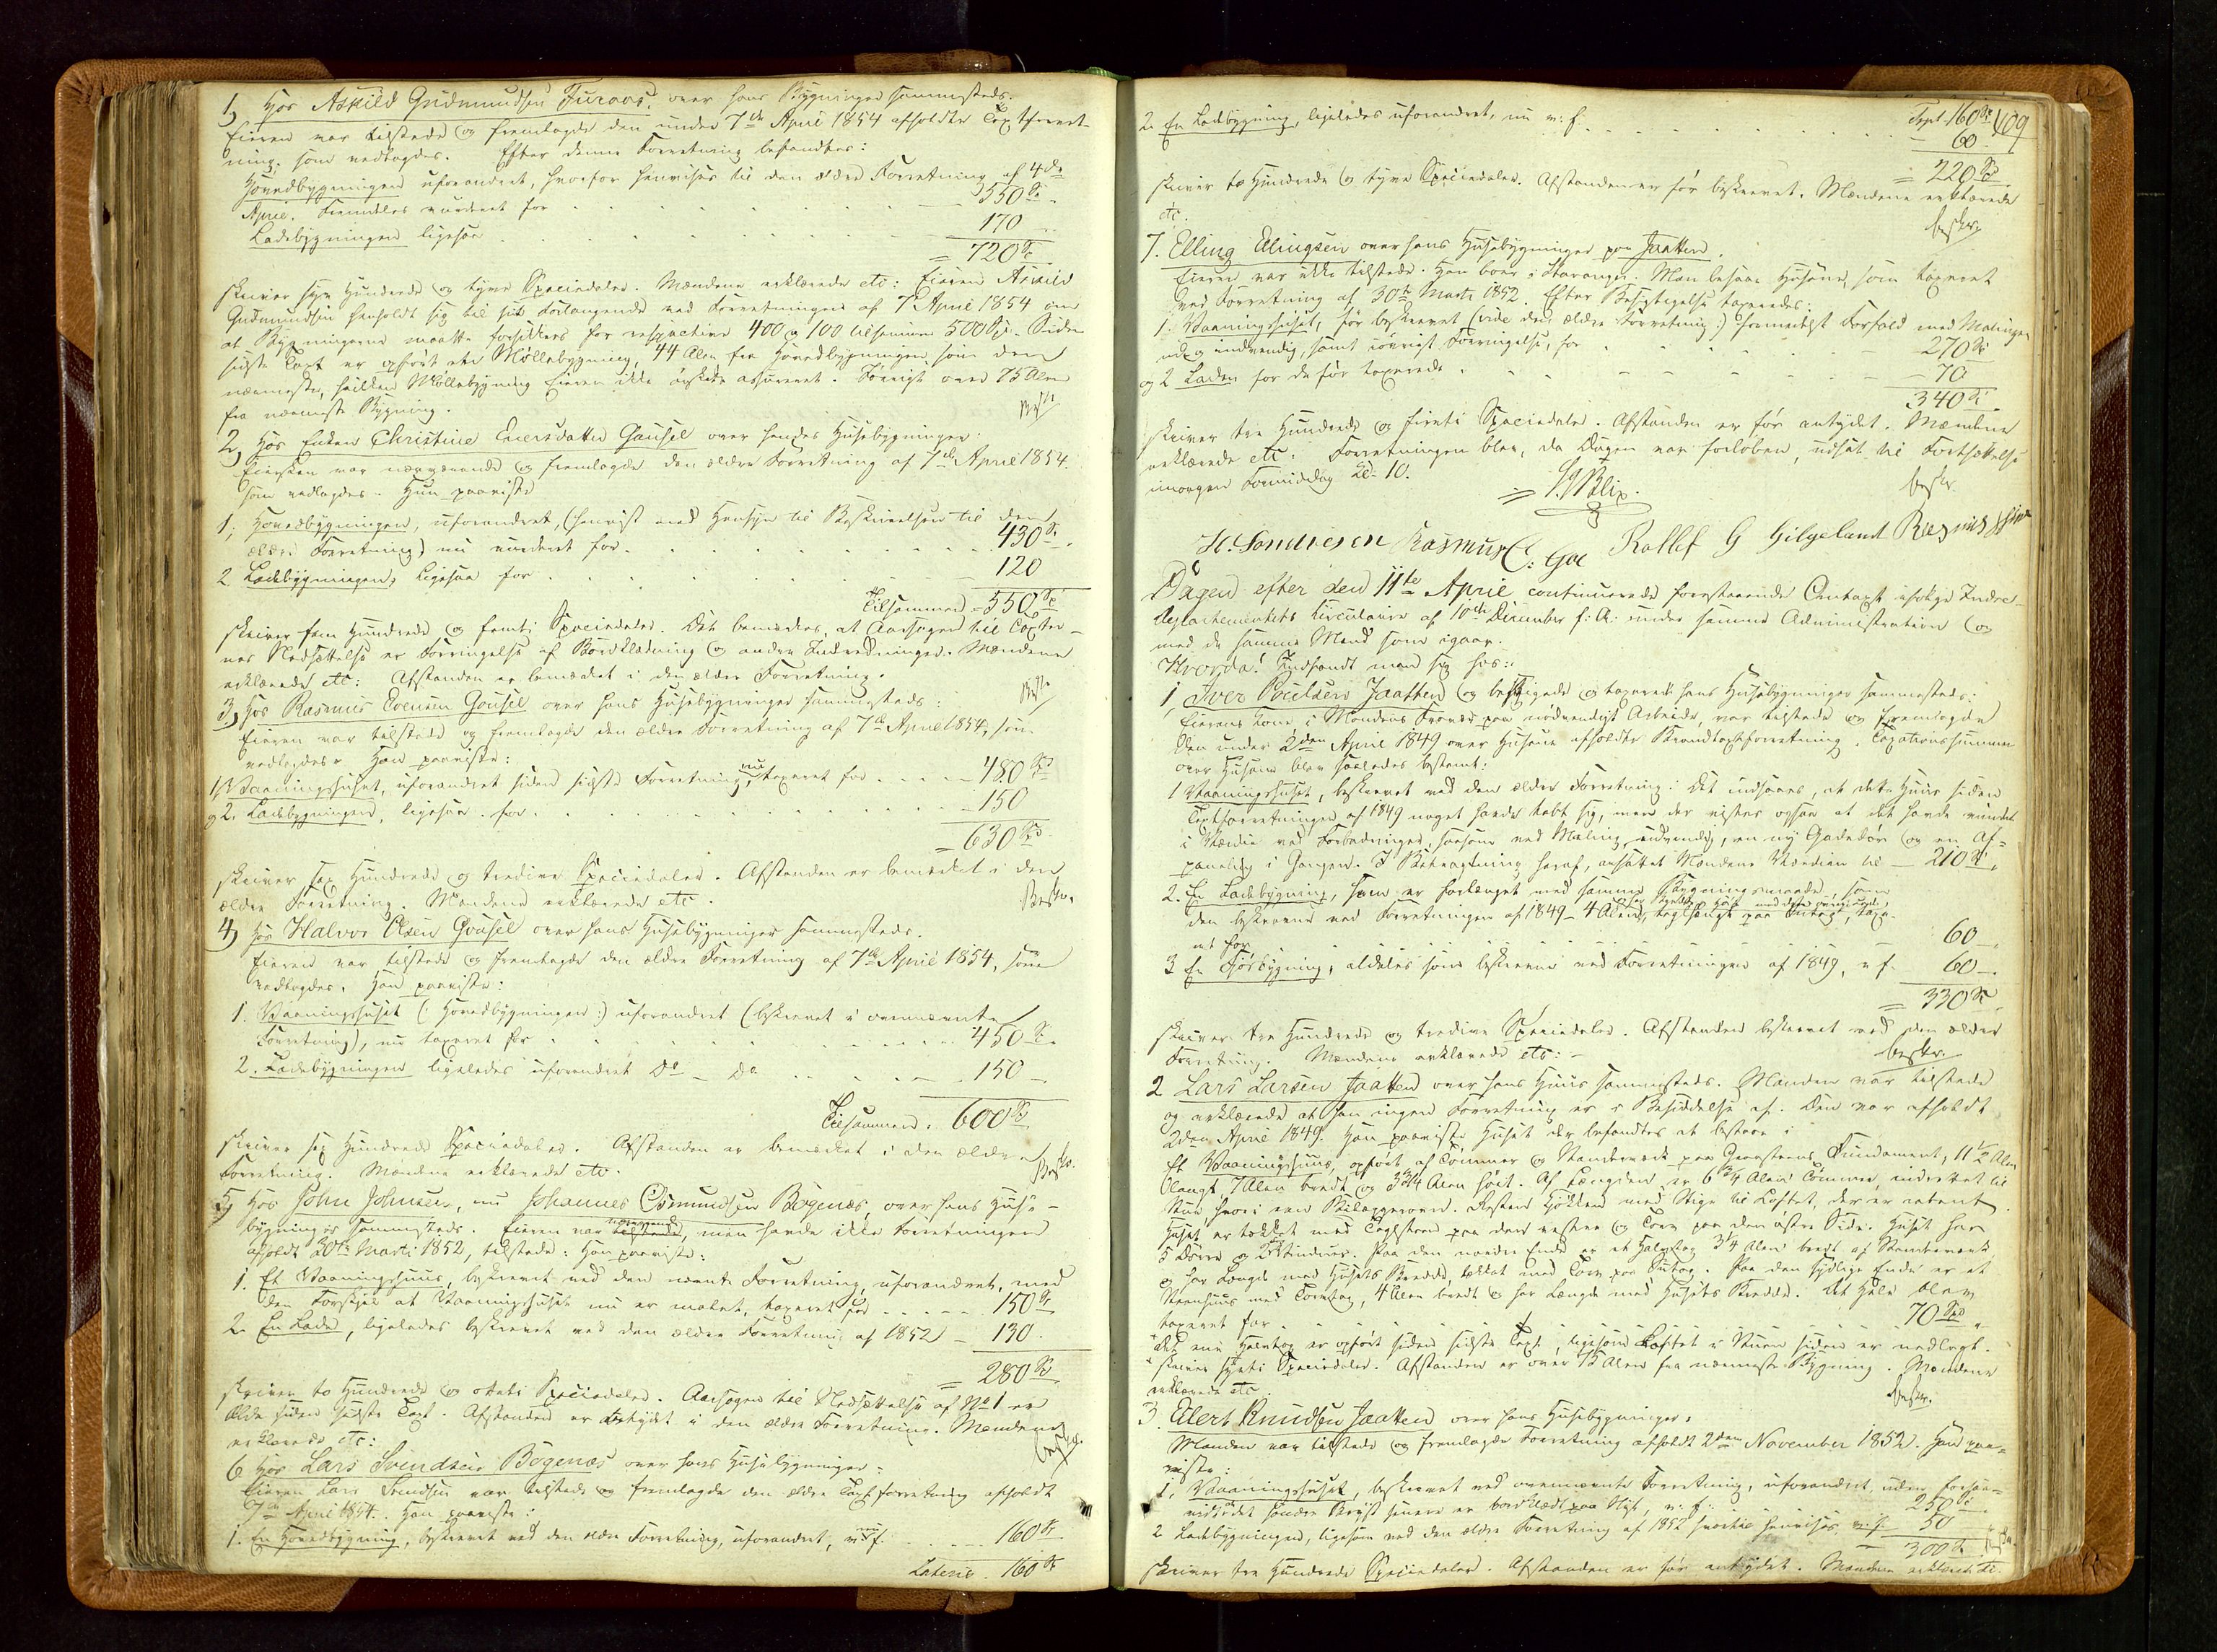 1, Hos Askild Gudmundsen Furaas, over hans Bygninger sammesteds.
Eieren var tilstede og fremlagde den under 7de April 1854 afholdte Taxtforret-
ning, som vedtoges. Efter denne Forretning befandtes:
Hovedbygningen uforandret, hvorfor henvises til den ældre Forretning af 7de
April. Fremdeles vurderet for 550 Sp.
Ladebygningen ligesaa 170
= 720 Sp
skriver syv Hundrede og tyve Speciedaler. Mændene erklærede etc: Eieren Askild
Gudmundsen henholdt sig til sit Forlangende ved Forretningen af 7 April 1854 om
at Bygningerne maatte forsikkres for respective 400 og 100 tilsammen 500 Spd. Siden
sidste Taxt er opført en Møllebygning, 44 Alen fra Hovedbygningen som den
nærmeste, hvilken Møllebygning Eieren ikke ønskede assureret. Forøvrigt over 75 Alen
fra nærmeste Bygning.
2, Hos Enken Christine Evensdatter Gausel over hendes Huusebygninger.
Eiersken var nærværende og fremlagde den ældre Forretning af 7de April 1854.
som vedtoges. Hun paaviste
1, Hovedbygningen, uforandret, (henvist med Hensyn til Beskrivelsen til den
ældre Forretning) nu vurderet for 430 Sp.
2 Ladebygningen, ligesaa for 120
Tilsammen = 550 Sp
skriver fem Hundrede og femti Speciedaler. Det bemærkes, at Aarsagen til Taxter-
nes Nedsættelse er Forringelse af Bordklædning og andre Indredninger. Mændene
erklærede etc: Afstanden er bemærket i den ældre Forretning.
3, Hos Rasmus Evensen Gausel over hans Huusebygninger sammesteds:
Eieren var tilstede og fremlagde den ældre Forretning af 7de April 1854, som
vedtoges. Han paaviste:
1, Vaaningshuset, uforandret siden sidste Forretning, nu taxeret for 480 Sp
og 2. Ladebygningen, ligesaa for 150
= 630 Sp.
skriver sex Hundrede og tredive Speciedaler. Afstanden er bemærket i den
ældre Forretning. Mændene erklærede etc.
4, Hos Halvor Olsen Gausel over hans Huusebygninger sammesteds.
Eieren var tilstede og fremlagde den ældre Forretning af 7de April 1854, som
vedtoges. Han paaviste:
1. Vaaningshuset (: Hovedbygningen :) uforandret (beskrevet i ovennævnte
Forretning), nu taxeret for 450 Sp.
2. Ladebygningen ligeledes uforandret do - do 150
Tilsammen = 600 Sp
skriver sex Hundrede Speciedaler. Afstanden er bemærket i den ældre
Forretning. Mændene erklærede etc.
5, Hos John Johnsen, nu Johannes Osmundsen Bøgenæs, over hans Huse-
bygninger sammesteds. Eieren var tilstede, men havde ikke Forretningen
afholdt 30te Marti 1852, tilstede: Han paaviste:
1. Et Vaaningshuus, beskrevet ved den nævnte Forretning, uforandret, med
den Forskjel at Vaaningshuset nu er malet, taxeret for 150 Sp
2. En Lade, ligeledes beskrevet ved den ældre Forretning af 1852 130.
= 280 Sp
skriver to Hundrede og otteti Speciedaler. Aarsagen til Nedsættelse af No 1 er
Ælde siden sidste Taxt. Afstanden er antydet i den ældre Forretning. Mændene
erklærede etc:
6 Hos Lars Svendsen Bøgenæs over hans Husebygninger:
Eieren Lars Svendsen var tilstede og fremlagde den ældre Taxtforretning afholdt
7de April 1854. Han paaviste:
1. En Hovedbygning, beskrevet ved den ældre Forretning, uforandret, 160 Sp.
Lateris. 160 Sp
Tspt. 160 Sp 409
2. En Ladebygning, ligeledes uforandret, nu v: f. 60
= 220 Sp
skriver to Hundrede og tyve Speciedaler. Afstanden er før beskrevet. Mændene erklærede
etc.
beskr.
7. Elling Elingsen over hans Husebygninger paa Jaatten.
Eieren var ikke tilstede. Han boer i Stavanger. Man besaae Husene, som taxeret
ved Forretning af 30te Marti 1852. Efter Besigtigelse taxeredes:
1. Vaaningshuset, før beskrevet (vide den ældre Forretning :) formedelst Forfald med Malingen
ud og indvendig, samt iøvrigt Forringelse, for 270 Sp
og 2 Laden for de før taxerede 70
340 Sp.
skriver tre Hundrede og firreti Speciedaler. Afstanden er før antydet. Mændene
erklærede etc: Forretningen blev, da Dagen var forløben, udsat til Fortsættelse
imorgen Formiddag Kl. 10.
beskr.
Dagen efter den 11te April continueredes forestaaende Omtaxt ifølge Indre-
Departementets Circulaire af 10de December f: A: under samme Administration og
med de samme Mænd som igaar.
Hvorda! Indfandt man sig hos:
1, Iver Poulsen Jaatten og besigtigede og taxerede hans Husebygninger sammesteds:
Eierens Kone, i Mandens Fravær paa nødvendigt Arbeide, var tilstede og fremlagde
den under 2den April 1849 over Husene afholdte Brandtaxtforretning. Taxationssummen
over Husene blev saaledes bestemt:
1 Vaaningshuset, beskrevet ved den ældre Forretning: Det indsaaes, at dette Huus siden
Taxtforretningen af 1849 noget havde tabt sig, men der vistes ogsaa at det havde vundet
i Værdie ved Forbedringer, saasom ved Maling indvendig, en ny Gadedør og en Af-
paneling i Gangen. I Betragtning heraf, ansatte Mændene Værdien til 210 Sp.
2. En Ladebygning, som er forlænget med samme Bygningsmaade, som
den beskrevne ved Forretningen af 1849 - 4 Alen, taxe-
ret for 60
3 En Fjøsbygning, aldeles som beskreven ved Forretningen af 1849, v. f. 60
= 330 Sp
skriver tre Hundrede og tredive Speciedaler. Afstanden beskrevet ved den ældre
Forretning. Mændene erklærede etc: -
beskr.
2 Lars Larsen Jaatten over hans Huus sammesteds. Manden var tilstede
og erklærede at han ingen Forretning er i Besiddelse af. Den var afholdt
2den April 1849. Han paaviste Huset der befandtes at bestaae i
Et Vaaningshuus, opført af Tømmer og Standerværk paa Graasteens Fundament, 11 1/2 Alen
langt, 7 Alen bredt og 3 3/4 Alen høit. Af Længden er 6 3/4 Alen Tømmer, indrettet til
Stue hvori een Bilæggerovn. Resten Kjøkken med Stige til Loftet, der er aabent.
Huset er tækket med Taglsteen paa den vestre og Torv paa den østre Side. Huset har
5 Dørre og Vinduer. Paa den nordre Ende er et Halvtag 3 1/4 Alen bredt af Standerværk
og har Længde med Husets Bredde, tækket med Torv paa Sutag. Paa den sydlige Ende er et
Steenhuus med Torvtag, 4 Alen bredt og har Længde med Husets Bredde. Det Hele blev
taxeret for 70 Sp
Det ene Halvtag er opført siden sidste Taxt, ligesom Loftet i Stuen siden er nedlagt.
skriver sytti Speciedaler. Afstanden er over 75 Alen fra nærmeste Bygning. Mændene
erklærede etc.
beskr.
3. Eilert Knudsen Jaatten over hans Husebygninger.
Manden var tilstede og fremlagde Forretning afholdt 2den November 1852. Han paa-
viste:
1, Vaaningshuset, beskrevet ved ovennævnte Forretning, uforandret, uden forsaa-
vidt det søndre Bryst senere er bordklædt paa Nyt, v: f: 250 Sp.
2 Ladebygningen, ligesom ved den ældre Forretning af 1852 hvortil henvises, v. f. 50
= 300 Sp
skriver tre Hundrede Speciedaler. Afstanden er før antydet. Mændene erklærede etc.